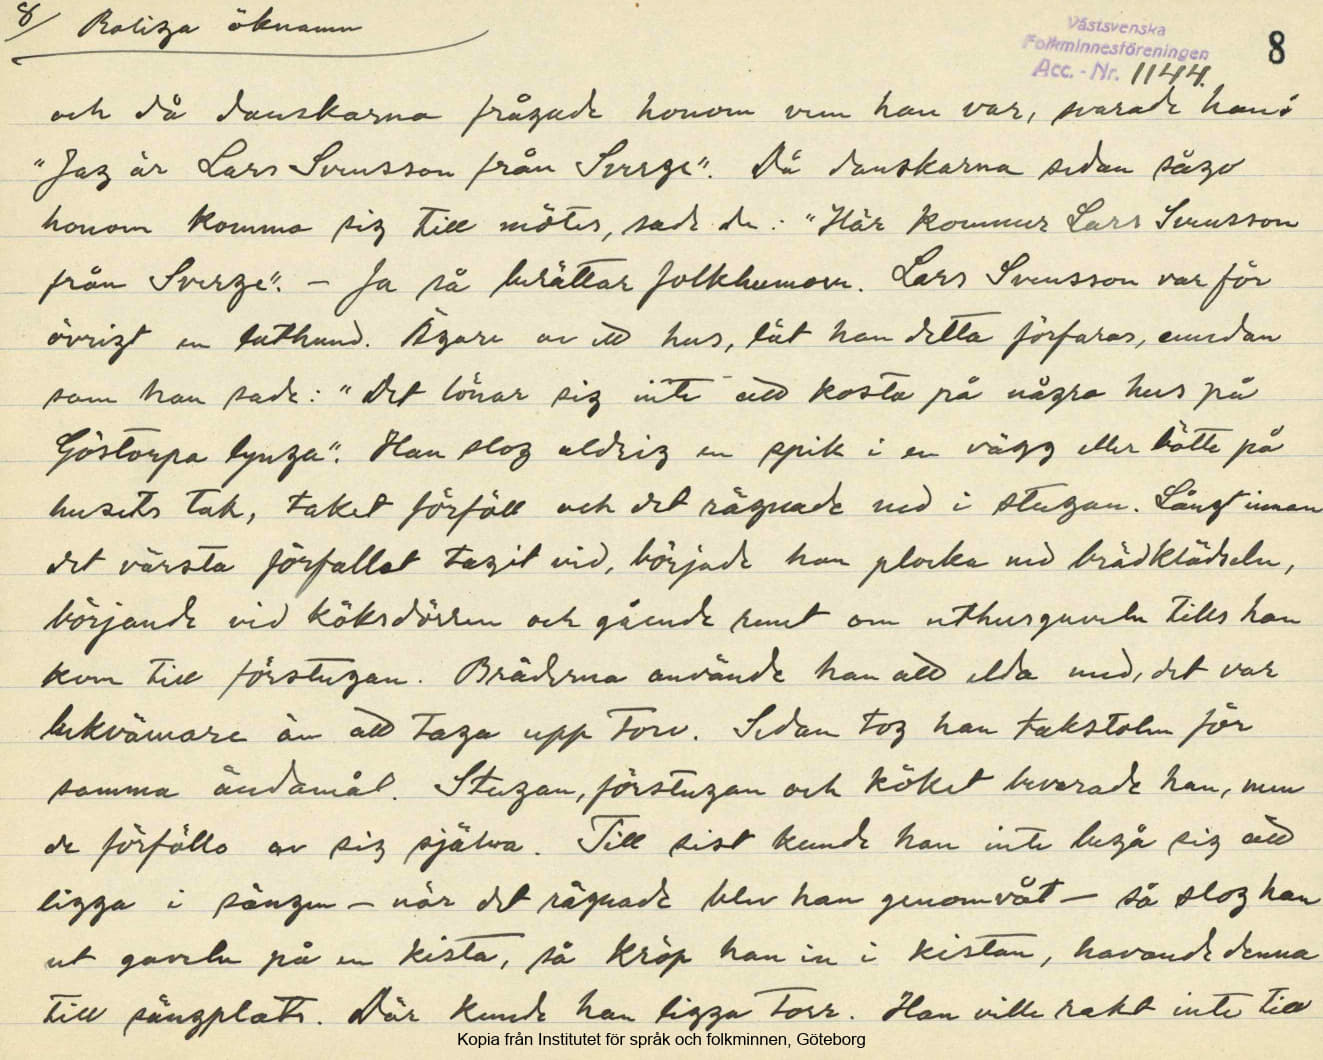 8/ Roliga öknamn
Västsvenska
Folkminnesföreningen
Acc. - Nr. 1144.
8
och då danskarna frågade honom vem han var, svarade han:
"Jag är Lars Svensson från Sverge". Då danskarna sedan sågo
honom komma sig till mötes, sade de: "Här kommer Lars Svensson
från Sverge". – Ja så berättar folkhumorn. Lars Svensson var för
övrigt en lathund. Ägare av ett hus, lät han detta förfaras, emedan
som han sade: "Det lönar sig inte att kosta på några hus på
Göstorpa lynga". Han slog aldrig en spik i en vägg eller bötte på
husets tak, taket förföll och det rägnade ned i stugan. Långt innan
det värsta förfallet tagit vid, började han plocka ned brädklädseln,
började vid köksdörren och gående runt om uthusgaveln tills han
kom till förstugan. Bräderna använde han att elda med, det var
bekvämare än att taga upp torv. Sedan tog han takstolen för
samma ändamål. Stugan, förstugan och köket bevarade han, men
de förföllo av sig själva. Till sist kunde han inte begå sig att
ligga i sängen – när det rägnade blev han genomvåt – så slog han
ut gaveln på en kista, så kröp han in i kistan, havande denna
till sängplats. Där kunde han ligga torr. Han ville rakt inte till
Kopia från Institutet för språk och folkminnen, Göteborg